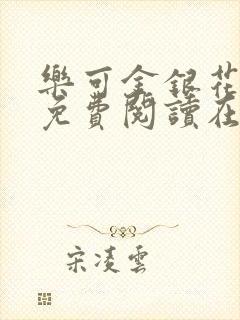 樂可金銀花
免費閱讀在
宋凌雲